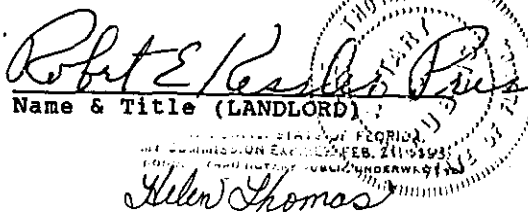 Robert E Kessler Pres
Name & Title (LANDLORD)
STATE OF FLORIDA
MY COMMISSION EXPIRES FEB. 21, 1993
NOTARY PUBLIC UNDERWRITERS
Helen Thomas
NOTARY